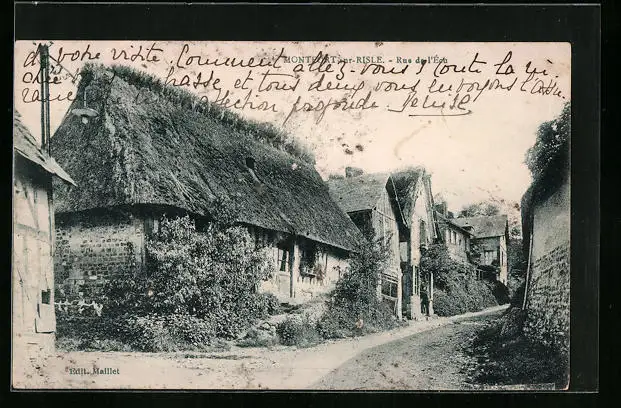 MONTFORT-sur-RISLE. - Rue de l'Écu
à votre visite Comment allez-vous toute la
chasse et tous deux vous envoyons l'assu
affection profonde Denise
Edit. Maillet